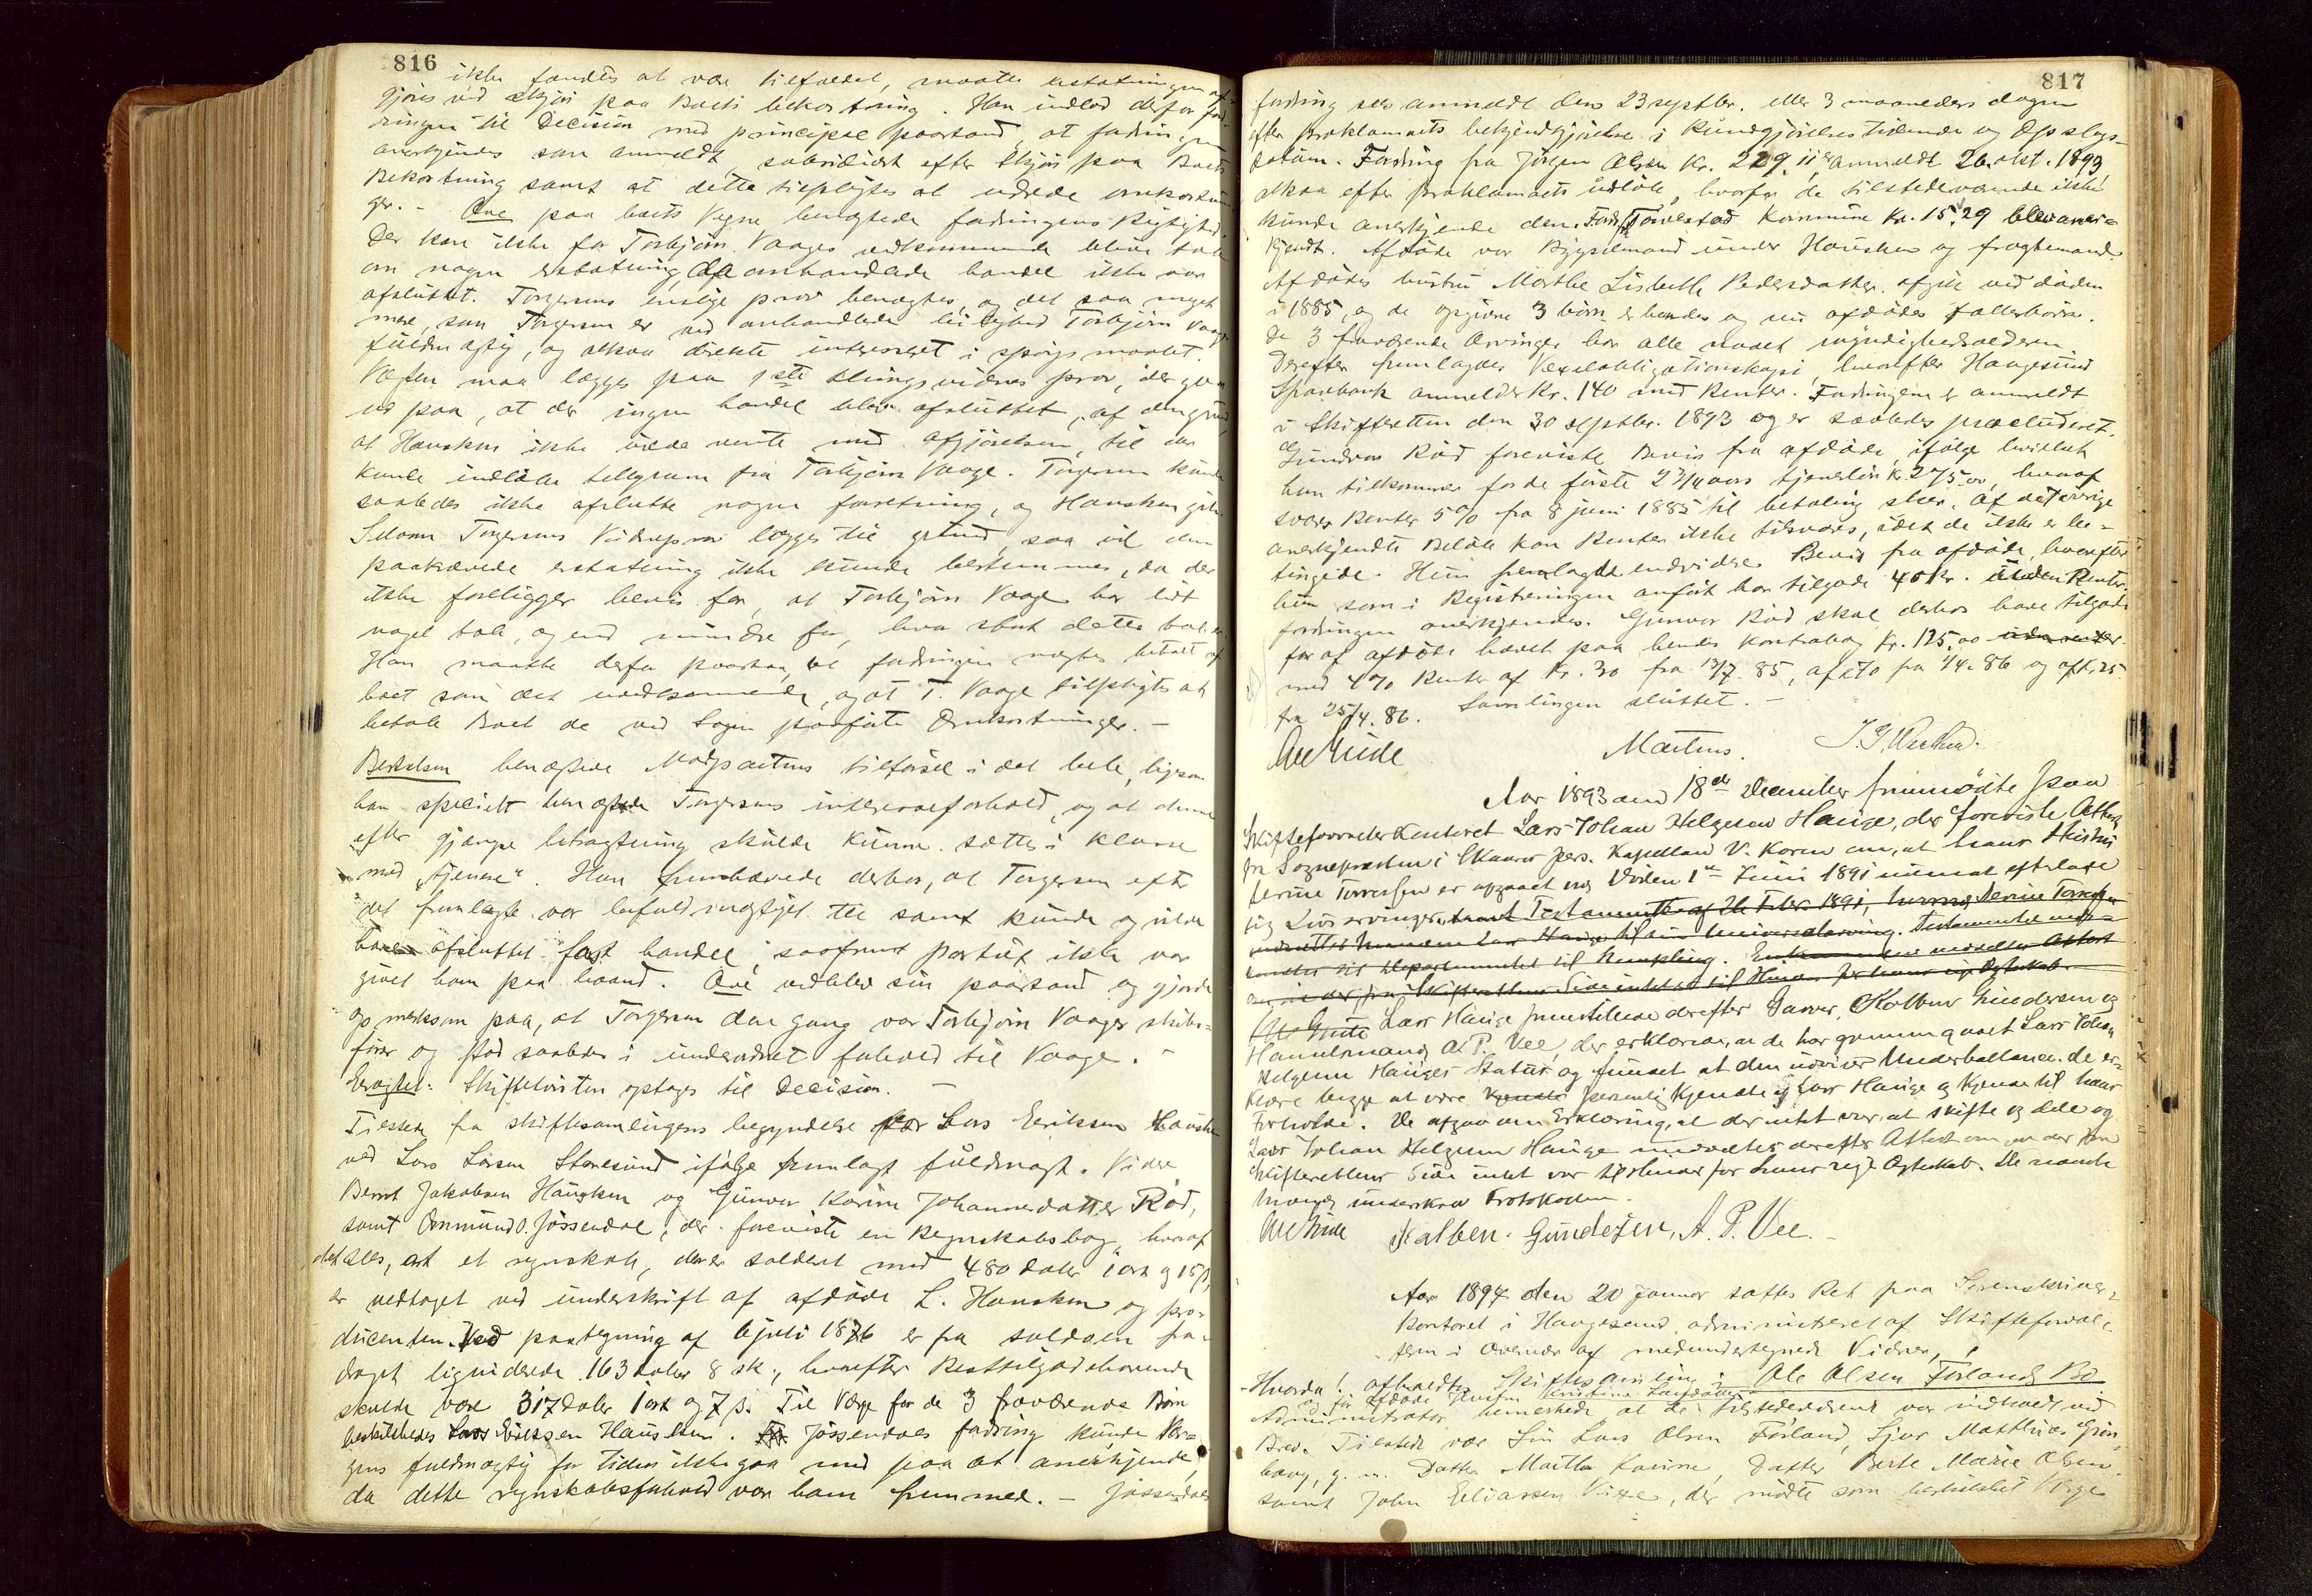 816
ikke fandtes at være tilfældet, maatte erstatningen af-
gjøres ved skjøn paa Boets bekostning. Han indlod derfor ford-
ringen til Decision med principal paastand, at fordringen
anerkjendes som anmeldt, subsidiært efter Skjøn paa Boets
Bekostning samt at dette tilpligtes at udrede omkostnin-
ger. - Ove paa boets Vegne benægtede fordringens Rigtighed.
Der kan ikke for Torbjørn Vaages vedkommende blive tale
om nogen erstatning, da omhandlede handel ikke var
afsluttet. Torgersens enslige prov benægtes, og det saa meget
mere, som Torgersen er ved omhandlede leilighed Torbjørn Vaages
fuldmægtig, og altsaa direkte interesseret i spørgsmaalet.
Vægten maa lægges paa 1ste thingsvidnes prov, der gaar
ud paa, at der ingen handel blev afsluttet, af den grund,
at Hausken ikke vilde vente med afgjørelsen, til der
kunde indløbe telegram fra Torbjørn Vaage. Torgersen kunde
saaledes ikke afslutte nogen forretning, og Hausken
Selvom Torgersens Vidneprov lægges til grund, saa vil den
paakrævede erstatning ikke kunne bestemmes, da der
ikke foreligger bevis for, at Torbjørn Vaage har lidt
noget tab, og end mindre for, hvor stort dette tab er.
Han maatte derfor paastaa, at fordringen nægtes betalt af
boet som det uvedkommende, og at T. Vaage tilpligtes at
betale Boet de ved Sagen paaførte Omkostninger. -
Bertelsen benægtede Modpartens tilførsel i det hele, ligesom
han specielt benægtede Torgersens interesseforhold, og at denne
efter gjængse betragtning skulde kunne sættes i klasse
med "tjenere". Han fremhævede derhos, at Torgersen efter
det fremlagte var befuldmægtiget til samt kunde og vilde
have afsluttet fast handel, saafremt partiet ikke var
givet ham paa haand. Ove vedblev sin paastand og gjorde
opmerksom paa, at Torgersen den gang var Torbjørn Vaages skibs-
fører og stod saaledes i underordnet forhold til Vaage. -
Eragtet: Skiftetvisten optages til Decision. -
Tilstede fra skiftesamlingens begyndelse var Lars Eriksen Hausken
ved Lars Larsen Storesund ifølge fremlagt fuldmagt. Videre
Bernt Jakobsen Hausken og Gunvor Karine Johannesdatter Rød,
samt Ommund O. Jøssendal, der foreviste en Regnskabsbog, hvoraf
det sees, at et regnskab, der er salderet med 480 daler 1 ort og 15 ß,
er vedtaget ved underskrift af afdøde L. Hausken og pro-
ducenten. Ved paategning af 6 juli 1876 er fra saldoen fra-
draget ligviderede 163 daler 8 sk., hvorefter Resttilgodehavende
skulde være 317 daler 1 ort og 7 ß. Til Værge for de 3 fraværende Børn
beskikkedes Lars Eriksen Hausken. Jøssendals fordring kunde Vær-
gens fuldmægtig for tiden ikke gaa med paa at anerkjende,
da dette regnskabsforhold var ham fremmed. - Jøssendals
817
fordring blev anmeldt den 23 septbr. eller 3 maaneders dagen
efter Proklamaets bekjendtgjørelse i Kundgjørelsestidende og Opslags-
datum. Fordring fra Jørgen Olsen Kr. 229.11 er anmeldt 26 okt. 1893
altsaa efter Proklamaets udløb, hvorfor de tilstedeværende ikke
kunde anerkjende den. Fordr. Torvestad Kommune Kr. 15.29 blev aner-
kjendt. Afdøde var Bygselmand under Hausken og fragtemand.
Afdødes hustru Marthe Lisbeth Pedersdatter afgik ved døden
i 1885, og de opgivne 3 børn er hendes og nu afdødes fællesbørn.
De 3 fraværende Arvinger har alle naaet myndighedsalderen.
Derefter fremlagdes Vexelobligationskopi, hvorefter Haugesund
Sparebank anmelder Kr. 140 med Renter. Fordringen er anmeldt
i Skifteretten den 30 septbr. 1893 og er saaledes præcluderet.
Gunvor Rød foreviste Bevis fra afdøde, ifølge hvilket
hun tilkommer for de første 2 3/4 aars tjenerløn Kr. 275.00, hvoraf
svares Renter 5% fra 8 juni 1885 til betaling skeer. Af det øvrige
anerkjendte Beløb kan Renter ikke tilsvares, idet de ikke er be-
tingede. Hun fremlagde endvidere Bevis fra afdøde, hvorefter
hun som i Registreringen anført har tilgode 40 Kr. uden Renter.
fordringen anerkjendes. Gunvor Rød skal derhos have tilgode
for af afdøde hævet paa hendes kontrabog Kr. 125.00 uden renter
med 4% Renter af Kr. 30 fra 13/7 85, af Kr. 70 fra 1/4. 86 og af Kr. 25
fra 25/4. 86. Samlingen sluttet. -
Martens.
Aar 1893 den 18de December fremmødte paa
Skifteforvalterkontoret Lars Johan Helgesen Hauge, der foreviste Attest
fra Sognepresten i Skaare pers. Kapellan V. Koren om, at hans Hustru
Serine Torresen er afgaaet ved Døden 1ste Juni 1891 uden at efterlade
sig Livsarvinger, samt Testamente af 26 Febr. 1891, hvorved Serine Torresen
indsætter sin Mand Lars Hauge til sin Universalarving. Testamentet ind-
sendes til Departementet til Stempling. Enkemanden meddeltes Attest
om at der fra Skifterettens Side intet er til Hinder for hans nye Ægteskab.
Lars Hauge fremstillede derefter Garver Kolben Gundersen og
Handelsmand A. P. Vee, der erklærede, at de har gjennemgaaet Lars Johan
Helgesen Hauges Status og fundet at den udviser Underballance. De er-
klære begge at være kjendte personlig kjendte af Lars Hauge og kjende til hans
Forholde. De afgav om Erklæring, at der intet var at skifte og dele og
Lars Johan Helgesen Hauge meddeltes derefter Attest om at der fra
Skifterettens Side intet var til Hinder for hans nye Ægteskab. De nævnte
Mænd underskrev Protokollen.
Kalben. Gundersen, A. P. Vee. -
Aar 1894 den 20 Januar sattes Ret paa Sorenskriver-
kontoret i Haugesund, administreret af Skifteforval-
teren i Overvær af medundertegnede Vidner,
Hvorda! afholdtes Skiftesamling i Ole Olsen Førlands Bo
og før afdøde Hustru Kristine Larsdatter
Administrator bemerkede at de tilstedeværende var indkaldt ved
Brev. Tilstede var Søn Lars Olsen Førland, Sjur Matthias Grin-
haug, g. m. Datter Martha Karine, Datter Berte Marie Olsen
samt John Eliassen Vixe, der mødte som beskikket Værge